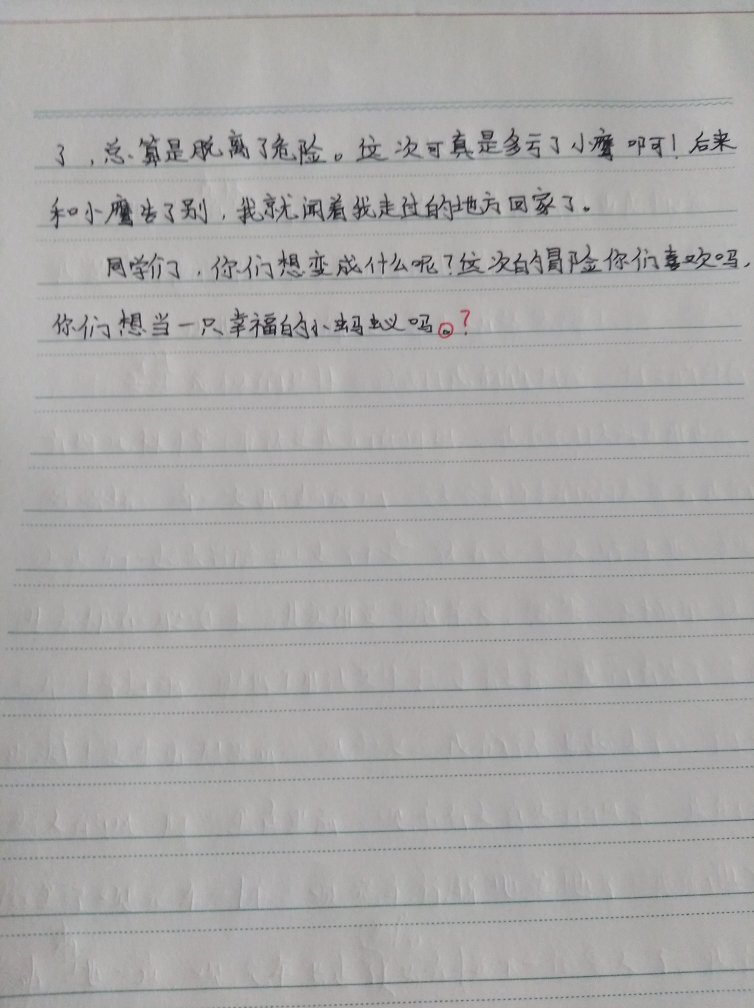 了，总算是脱离了危险。这次可真是多亏了小鹰啊！后来
和小鹰告了别，我就闻着我走过的地方回家了。
同学们，你们想变成什么呢？这次的冒险你们喜欢吗，
你们想当一只幸福的小蚂蚁吗。？